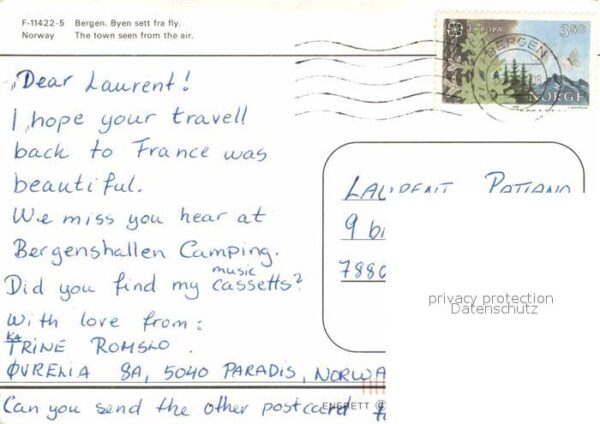 F-11422-5 Bergen. Byen sett fra fly.
Norway The town seen from the air.
EUROPA 350
BERGEN
NORGE
Dear Laurent!
I hope your travell
back to France was
beautiful.
We miss you hear at
Bergenshallen Camping.
Did you find my music cassetts?
With love from:
KATRINE ROMSLO
ØVRELIA 8A, 5040 PARADIS, NORWA
Can you send the other postcard
LAURENT
9
7880
privacy protection
Datenschutz
ENERETT ©